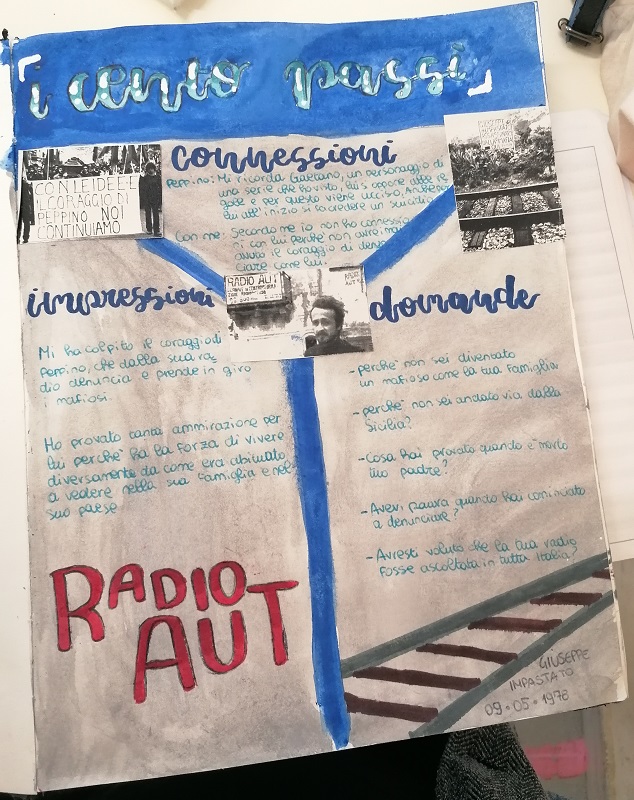 i cento passi
connessioni
CON LE IDEE E
IL CORAGGIO DI
PEPPINO NOI
CONTINUIAMO
Peppino: Mi ricorda Gaetano, un personaggio di
una serie che ho visto, lui si oppone alle re
gole e per questo viene ucciso. Anche per
lui all'inizio si fa credere un suicidio
Con me: Secondo me io non ho connessio
ni con lui perché non avrei mai
avuto il coraggio di denun
ciare come lui.
RADIO AUT
RADIO
AUT
impressioni
Mi ha colpito il coraggio di
Peppino, che dalla sua ra
dio denuncia e prende in giro
i mafiosi.
Ho provato tanta ammirazione per
lui perché ha la forza di vivere
diversamente da come era abituato
a vedere nella sua famiglia e nel
suo paese
domande
- perché non sei diventato
un mafioso come la tua famiglia
- perché non sei andato via dalla
Sicilia?
- Cosa hai provato quando è morto
tuo padre?
- Avevi paura quando hai cominciato
a denunciare?
- Avresti voluto che la tua radio
fosse ascoltata in tutta Italia?
RADIO
AUT
GIUSEPPE
IMPASTATO
09·05·1978